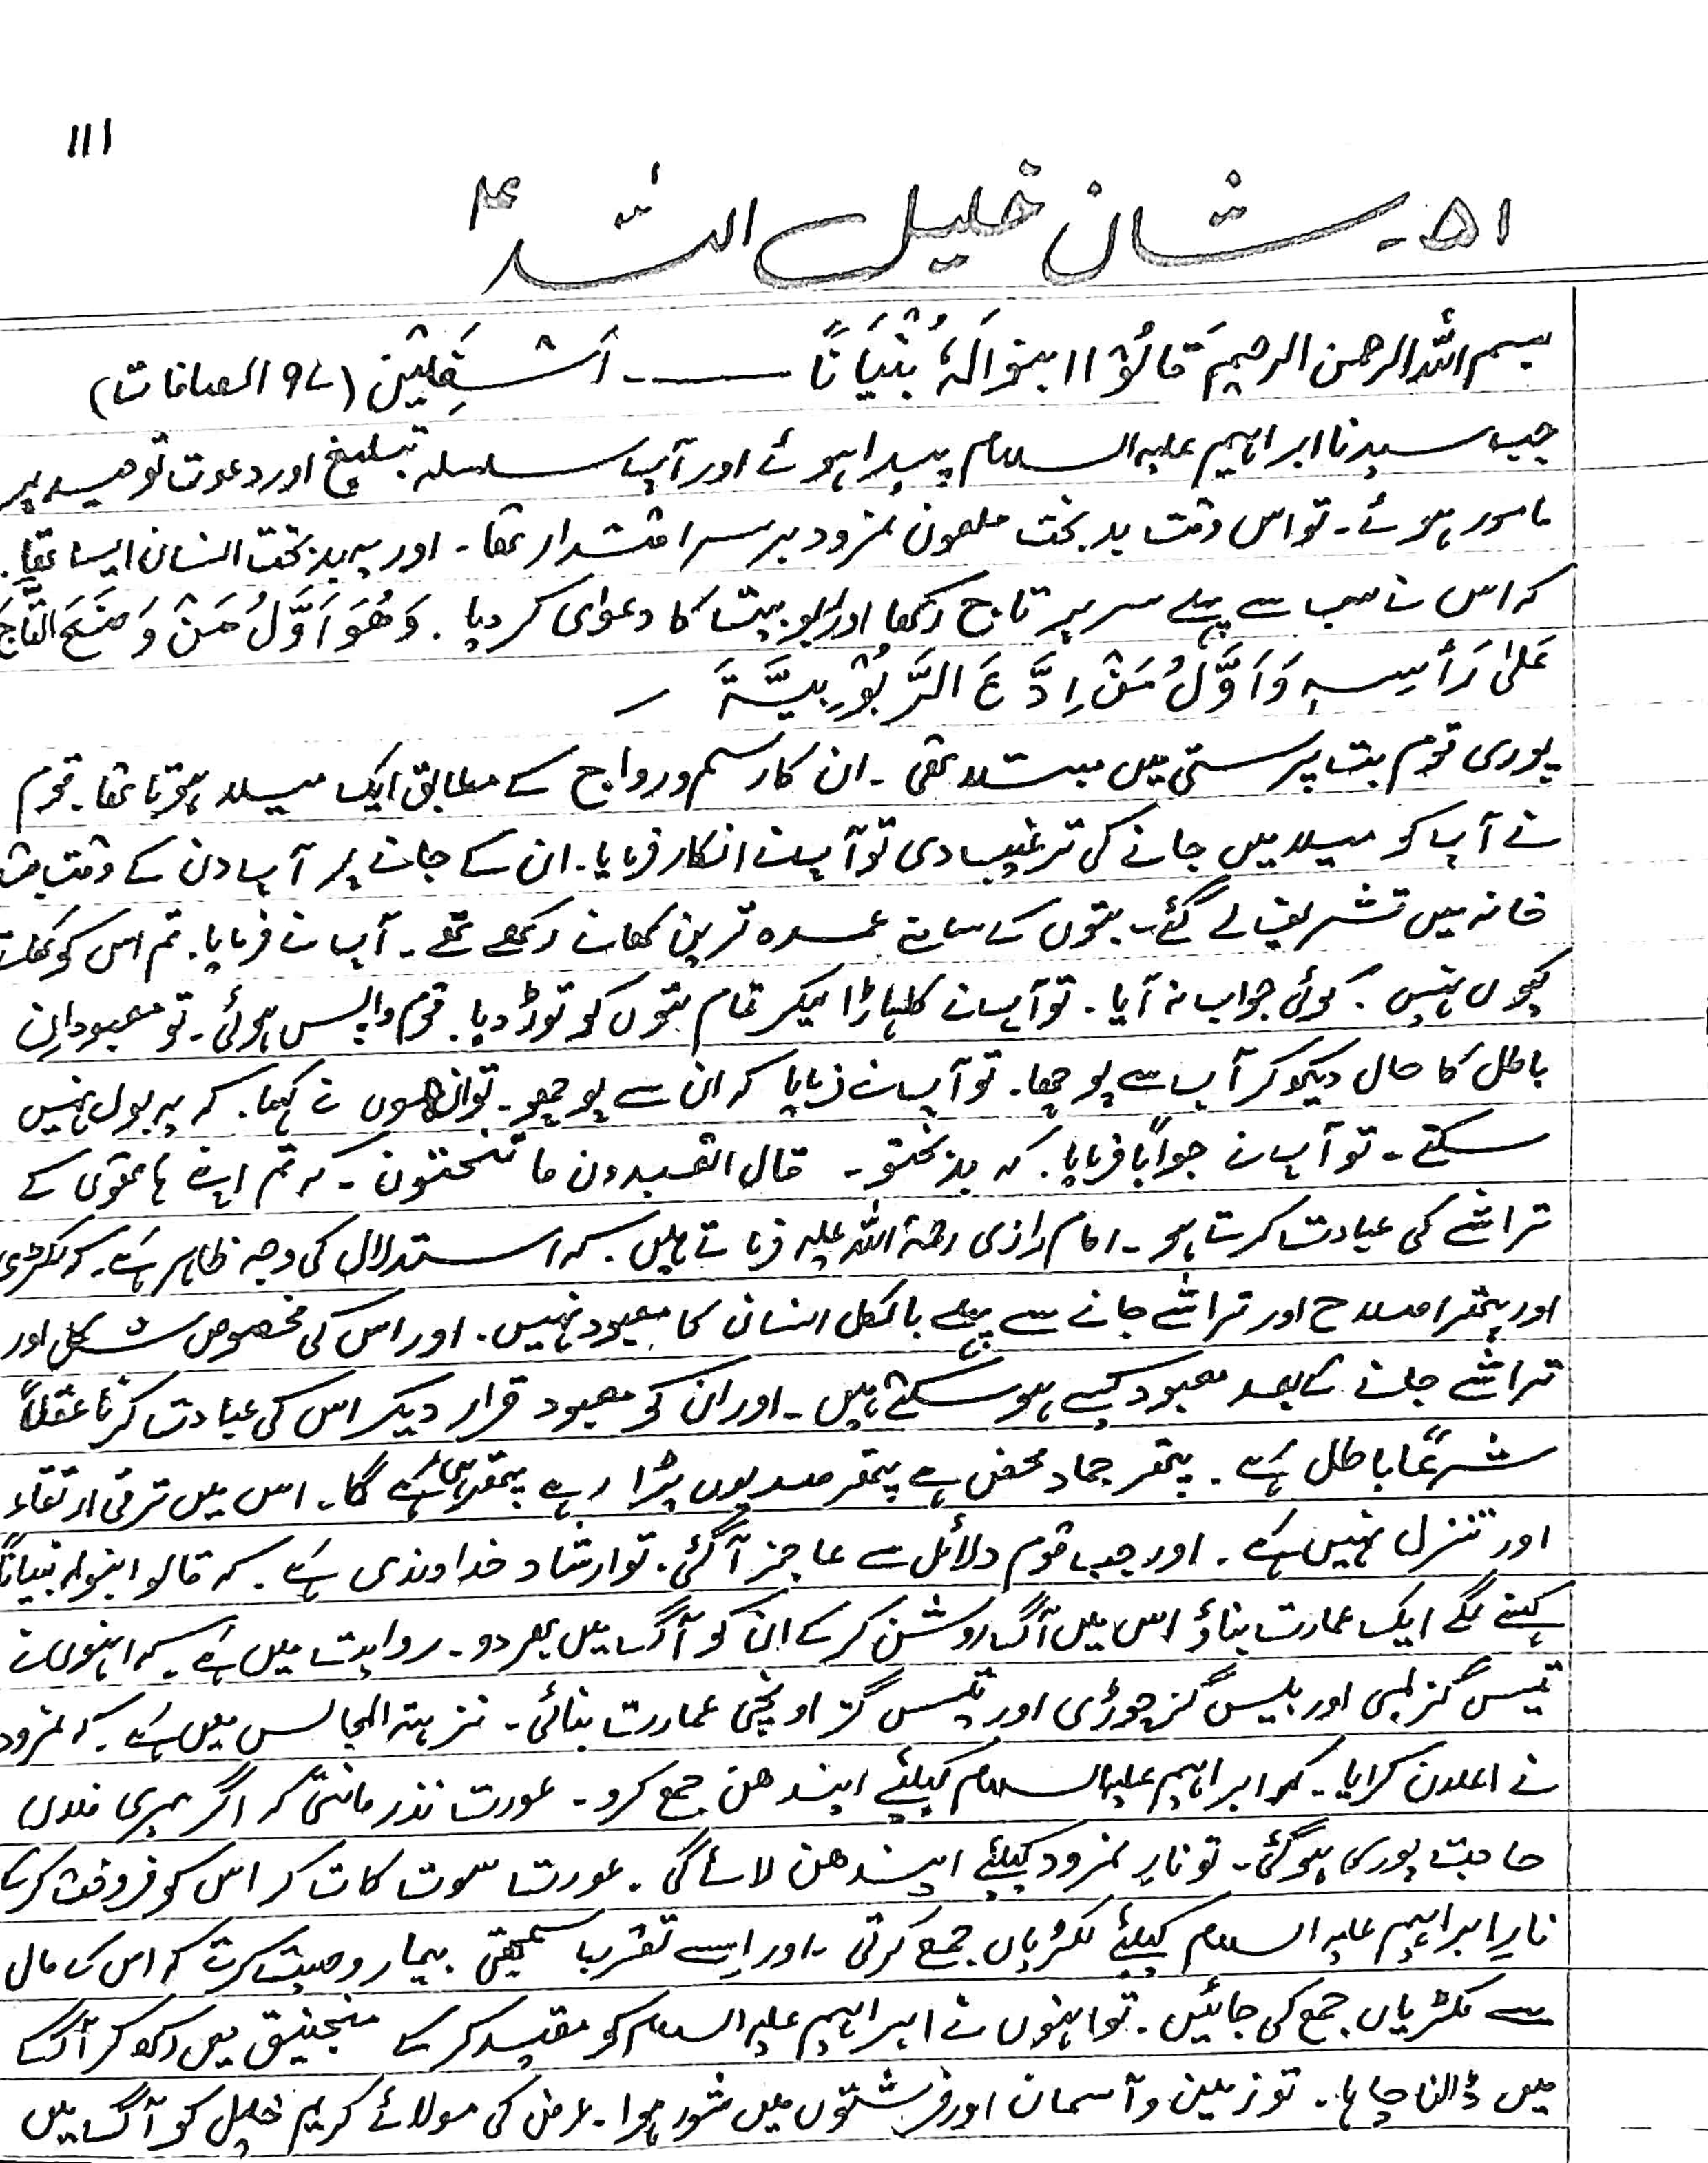 ۱۱۱
۵۱۔ شان خلیل اللہؑ
بسم اللہ الرحمن الرحیم قَالُوْا ابنوا لَہٗ بُنْیَانًا ——— اَسْفَلِیْنَ (۹۷ الصافات)
جب سیدنا ابراہیم علیہ السلام پیدا ہوئے اور آپ سلسلہ تبلیغ اور دعوت توحید پر
مامور ہوئے۔ تو اس وقت بدبخت ملعون نمرود برسر اقتدار تھا۔ اور یہ بدبخت انسان ایسا تھا۔
کہ اس نے سب سے پہلے سر پر تاج رکھا اور ربوبیت کا دعوای کر دیا۔ وَھُوَ اَوَّلُ مَنْ وَضَعَ التَّاجَ
عَلیٰ رَأسِہٖ وَاَوَّلُ مَنْ اِدَّعَ الرَّبُوْبِیَّۃَ ۔
پوری قوم بت پرستی میں مبتلا تھی۔ ان کا رسم و رواج کے مطابق ایک میلہ ہوتا تھا۔ قوم
نے آپ کو میلہ میں جانے کی ترغیب دی تو آپ نے انکار فرمایا۔ ان کے جانے پر آپ دن کے وقت بت
خانہ میں تشریف لے گئے۔ بتوں کے سامنے عمدہ ترین کھانے رکھے تھے۔ آپ نے فرمایا۔ تم اس کو کھاتے
کیوں نہیں۔ کوئی جواب نہ آیا۔ تو آپ نے کلہاڑا لیکر تمام بتوں کو توڑ دیا۔ قوم واپس ہوئی۔ تو معبودانِ
باطل کا حال دیکھ کر آپ سے پوچھا۔ تو آپ نے فرمایا کہ ان سے پوچھو۔ تو انھوں نے کہا۔ کہ یہ بول نہیں
سکتے۔ تو آپ نے جواباً فرمایا۔ کہ بدبختو۔ قال اتعبدون ما تنحتون۔ کہ تم اپنے ہاتھوں کے
تراشے کی عبادت کرتے ہو۔ امام رازی رحمۃ اللہ علیہ فرماتے ہیں۔ کہ استدلال کی وجہ ظاہر ہے۔ کہ لکڑی
اور پتھر اصلاح اور تراشے جانے سے پہلے بالکل انسان کا معبود نہیں۔ اور اس کی مخصوص شکل اور
تراشے جانے کے بعد معبود کیسے ہو سکتے ہیں۔ اور ان کو معبود قرار دیکر اس کی عبادت کرنا عقلاً
شرعًا باطل ہے۔ پتھر جماد محض ہے پتھر صدیوں پڑا رہے پتھر ہی رہے گا۔ اس میں ترقی ارتقاء
اور تنزل نہیں ہے۔ اور جب قوم دلائل سے عاجز آ گئی۔ تو ارشاد خداوندی ہے۔ کہ قالو ابنولہ بنیاناً
کہنے لگے ایک عمارت بناؤ اس میں آگ روشن کر کے ان کو آگ میں بھر دو۔ روایت میں ہے۔ کہ انہوں نے
تیس گز لمبی اور بیس گز چوڑی اور تیس گز اونچی عمارت بنائی۔ نزہتہ المجالس میں ہے۔ کہ نمرود
نے اعلان کرایا۔ کہ ابراہیم علیہ السلام کیلئے ایندھن جمع کرو۔ عورت نذر مانتی کہ اگر میری فلاں
حاجت پوری ہو گئی۔ تو نارِ نمرود کیلئے ایندھن لائے گی۔ عورت سوت کات کر اس کو فروخت کر کے
نارِ ابراہیم علیہ السلام کیلئے لکڑیاں جمع کرتی۔ اور اسے تقربا سمجھتی بیمار وصیت کرتے کہ اس کے مال
سے لکڑیاں جمع کی جائیں۔ تو انہوں نے ابراہیم علیہ السلام کو مقید کر کے منجنیق میں رکھ کر آگ
میں ڈالنا چاہا۔ تو زمین و آسمان اور فرشتوں میں شور ہوا۔ عرض کی مولائے کریم خلیل کو آگ میں